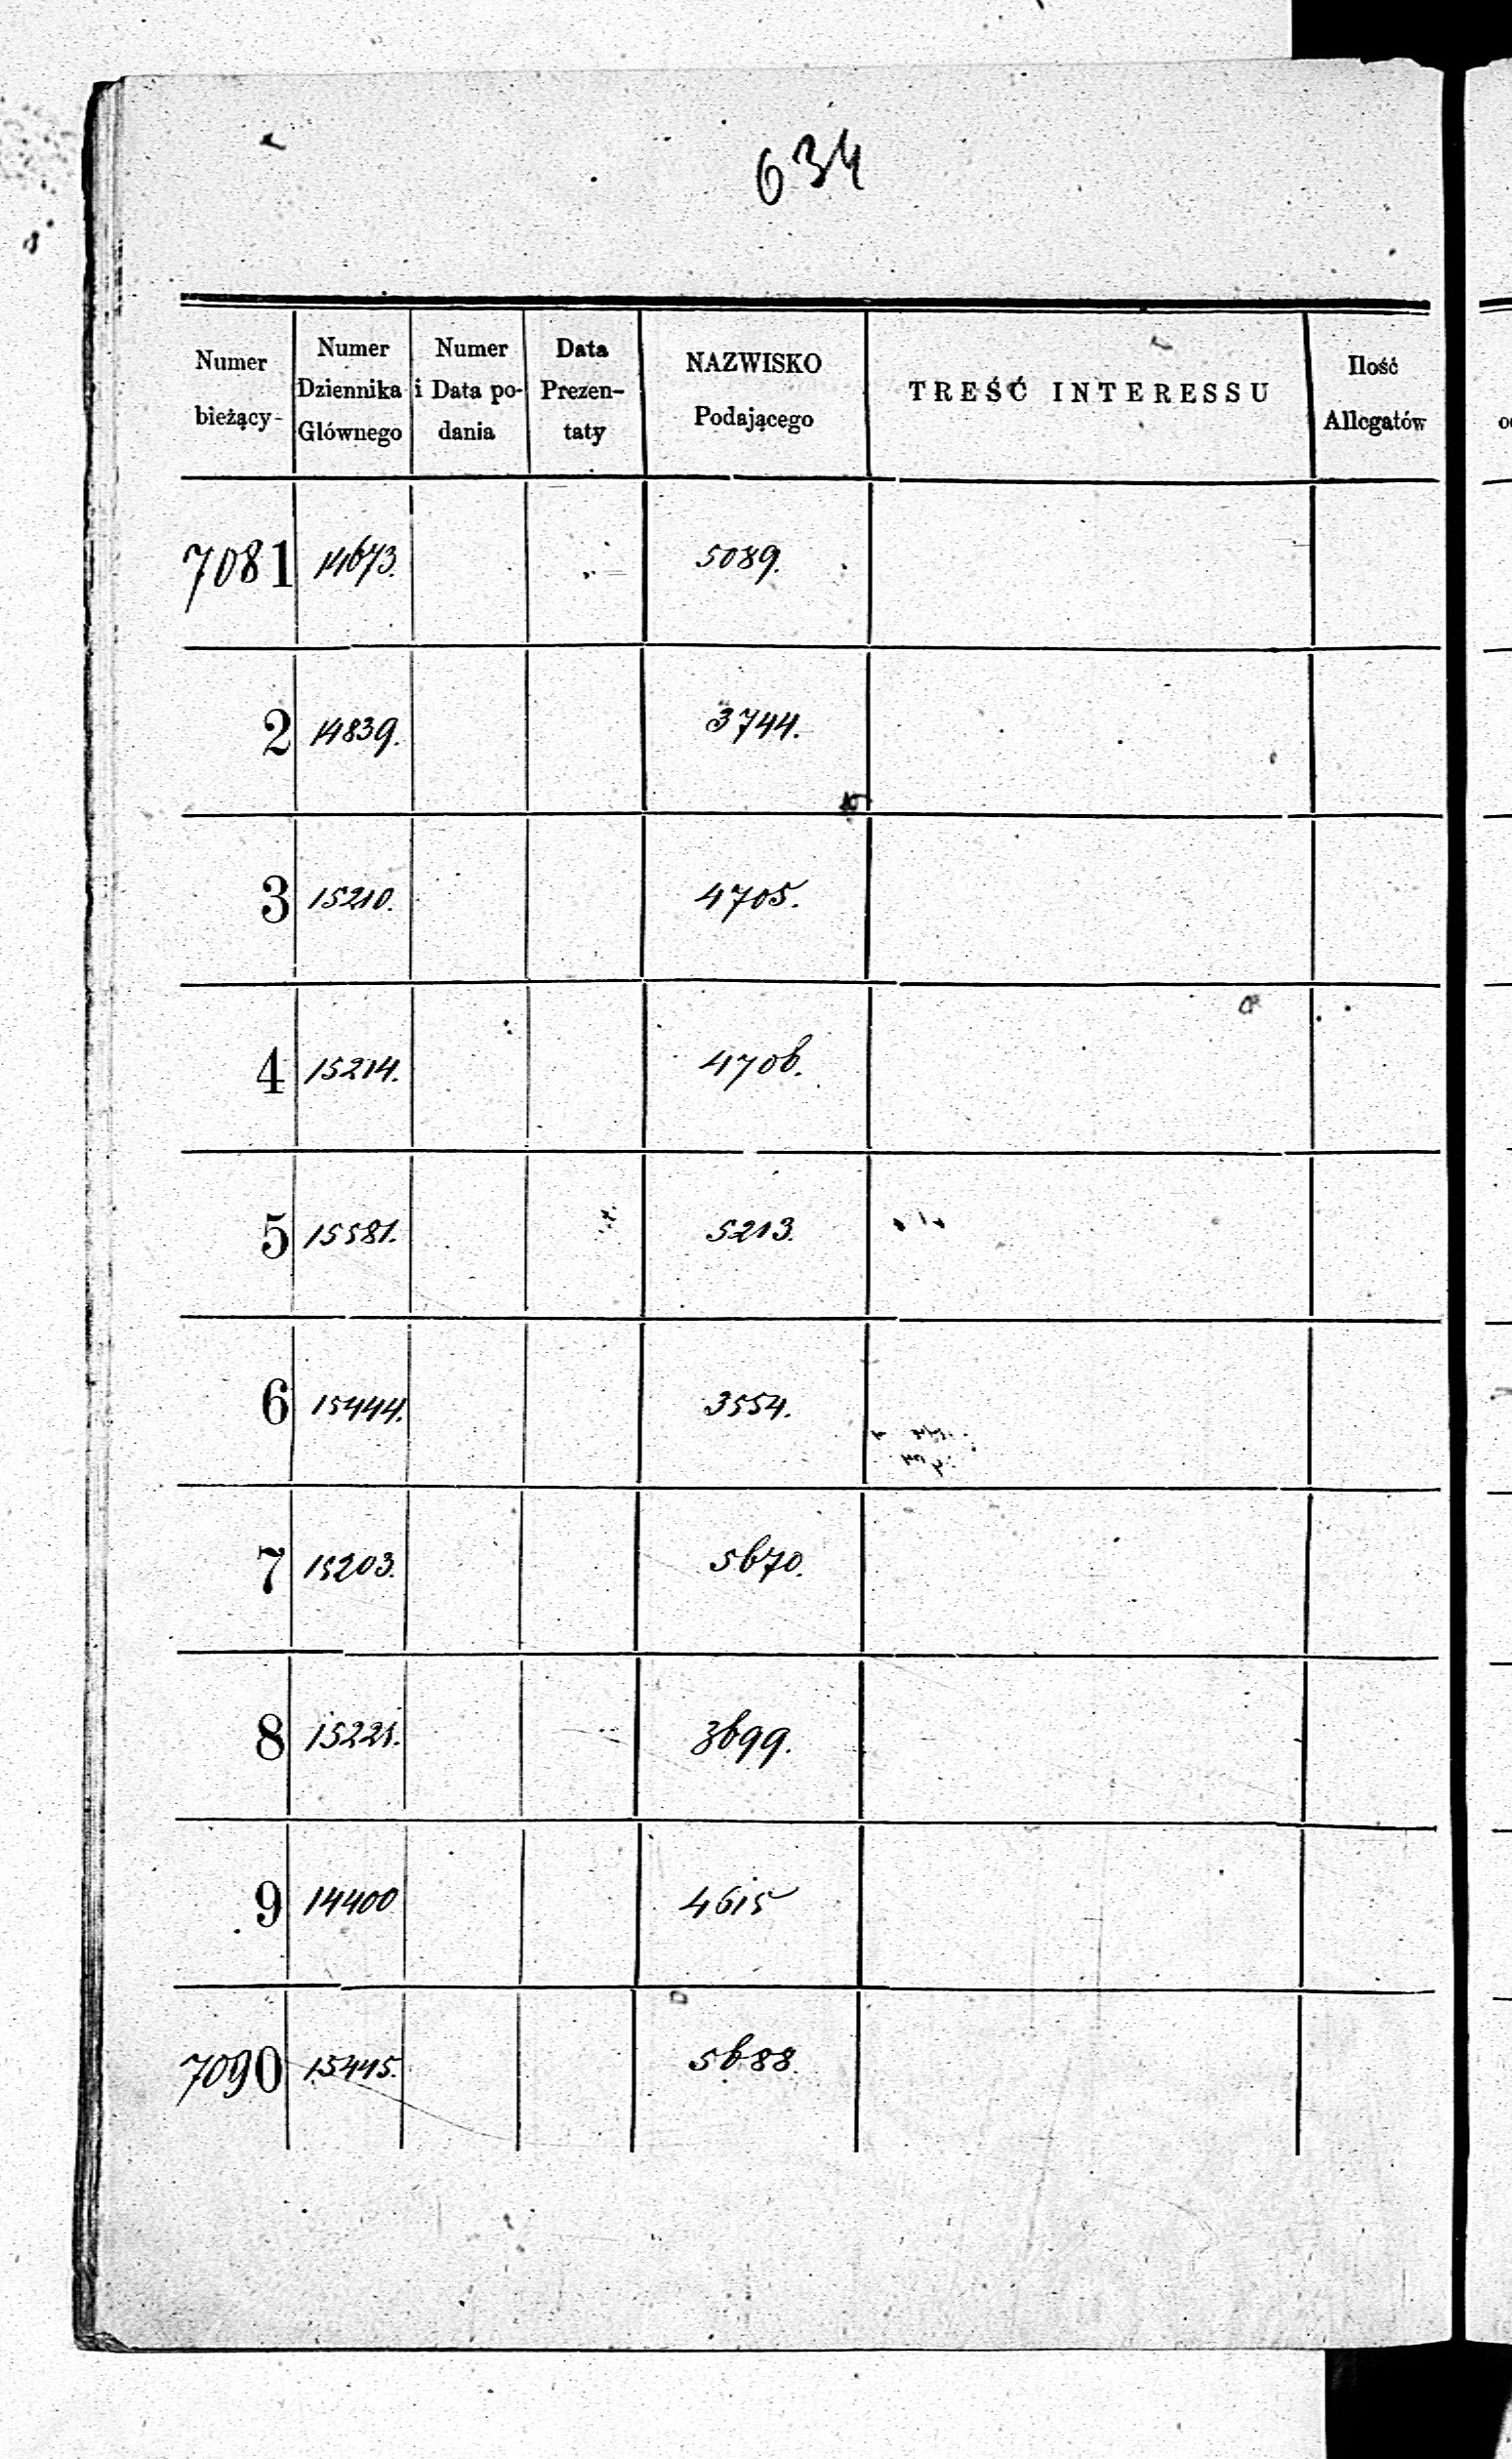 634
Numer bieżący- Numer Dziennika Głównego Numer i Data po- dania Data Prezen- taty NAZWISKO Podającego TREŚĆ INTERESSU Ilość Allegatów
7081 14673. 5089.
2 14839. 3744.
3 15210. 4705.
4 15214. 4706.
5 15581. 5213.
6 15444. 3554.
7 15203. 5670.
8 15221. 3699.
9 14400 4615
7090 15445. 5688.